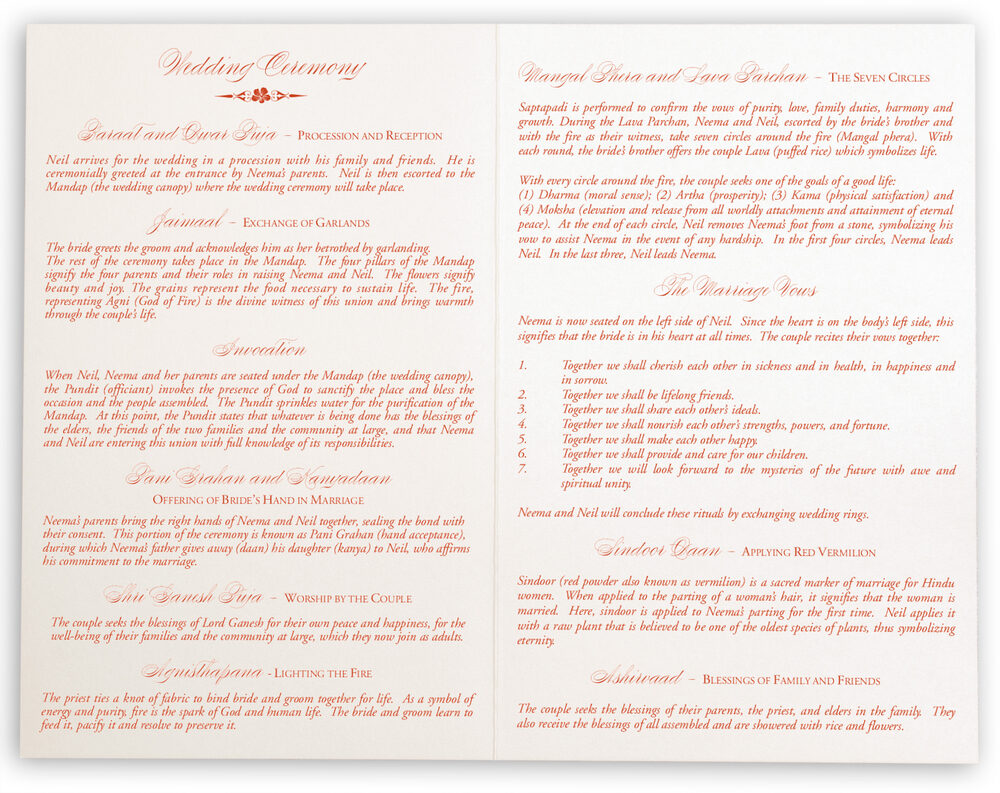 Wedding Ceremony
Baraat and Dwar Puja – Procession and Reception
Neil arrives for the wedding in a procession with his family and friends. He is
ceremonially greeted at the entrance by Neema's parents. Neil is then escorted to the
Mandap (the wedding canopy) where the wedding ceremony will take place.
Jaimaal – Exchange of Garlands
The bride greets the groom and acknowledges him as her betrothed by garlanding.
The rest of the ceremony takes place in the Mandap. The four pillars of the Mandap
signify the four parents and their roles in raising Neema and Neil. The flowers signify
beauty and joy. The grains represent the food necessary to sustain life. The fire,
representing Agni (God of Fire) is the divine witness of this union and brings warmth
through the couple's life.
Invocation
When Neil, Neema and her parents are seated under the Mandap (the wedding canopy),
the Pundit (officiant) invokes the presence of God to sanctify the place and bless the
occasion and the people assembled. The Pundit sprinkles water for the purification of the
Mandap. At this point, the Pundit states that whatever is being done has the blessings of
the elders, the friends of the two families and the community at large, and that Neema
and Neil are entering this union with full knowledge of its responsibilities.
Pani Grahan and Kanyadaan
Offering of Bride's Hand in Marriage
Neema's parents bring the right hands of Neema and Neil together, sealing the bond with
their consent. This portion of the ceremony is known as Pani Grahan (hand acceptance),
during which Neema's father gives away (daan) his daughter (kanya) to Neil, who affirms
his commitment to the marriage.
Shri Ganesh Puja – Worship by the Couple
The couple seeks the blessings of Lord Ganesh for their own peace and happiness, for the
well-being of their families and the community at large, which they now join as adults.
Agnisthapana - Lighting the Fire
The priest ties a knot of fabric to bind bride and groom together for life. As a symbol of
energy and purity, fire is the spark of God and human life. The bride and groom learn to
feed it, pacify it and resolve to preserve it.
Mangal Phera and Lava Parchan – The Seven Circles
Saptapadi is performed to confirm the vows of purity, love, family duties, harmony and
growth. During the Lava Parchan, Neema and Neil, escorted by the bride's brother and
with the fire as their witness, take seven circles around the fire (Mangal phera). With
each round, the bride's brother offers the couple Lava (puffed rice) which symbolizes life.
With every circle around the fire, the couple seeks one of the goals of a good life:
(1) Dharma (moral sense); (2) Artha (prosperity); (3) Kama (physical satisfaction) and
(4) Moksha (elevation and release from all worldly attachments and attainment of eternal
peace). At the end of each circle, Neil removes Neema's foot from a stone, symbolizing his
vow to assist Neema in the event of any hardship. In the first four circles, Neema leads
Neil. In the last three, Neil leads Neema.
The Marriage Vows
Neema is now seated on the left side of Neil. Since the heart is on the body's left side, this
signifies that the bride is in his heart at all times. The couple recites their vows together:
1. Together we shall cherish each other in sickness and in health, in happiness and
in sorrow.
2. Together we shall be lifelong friends.
3. Together we shall share each other's ideals.
4. Together we shall nourish each other's strengths, powers, and fortune.
5. Together we shall make each other happy.
6. Together we shall provide and care for our children.
7. Together we will look forward to the mysteries of the future with awe and
spiritual unity.
Neema and Neil will conclude these rituals by exchanging wedding rings.
Sindoor Daan – Applying Red Vermilion
Sindoor (red powder also known as vermilion) is a sacred marker of marriage for Hindu
women. When applied to the parting of a woman's hair, it signifies that the woman is
married. Here, sindoor is applied to Neema's parting for the first time. Neil applies it
with a raw plant that is believed to be one of the oldest species of plants, thus symbolizing
eternity.
Ashirvaad – Blessings of Family and Friends
The couple seeks the blessings of their parents, the priest, and elders in the family. They
also receive the blessings of all assembled and are showered with rice and flowers.